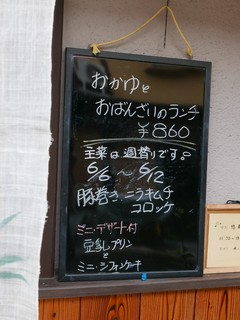 おかゆと
おばんざいのランチ
¥860
主菜は週替りです♪
6/6 ～ 6/12
豚巻き ニラキムチ
コロッケ
ミニ・デザート付
豆乳プリン
と
ミニ・シフォンケーキ